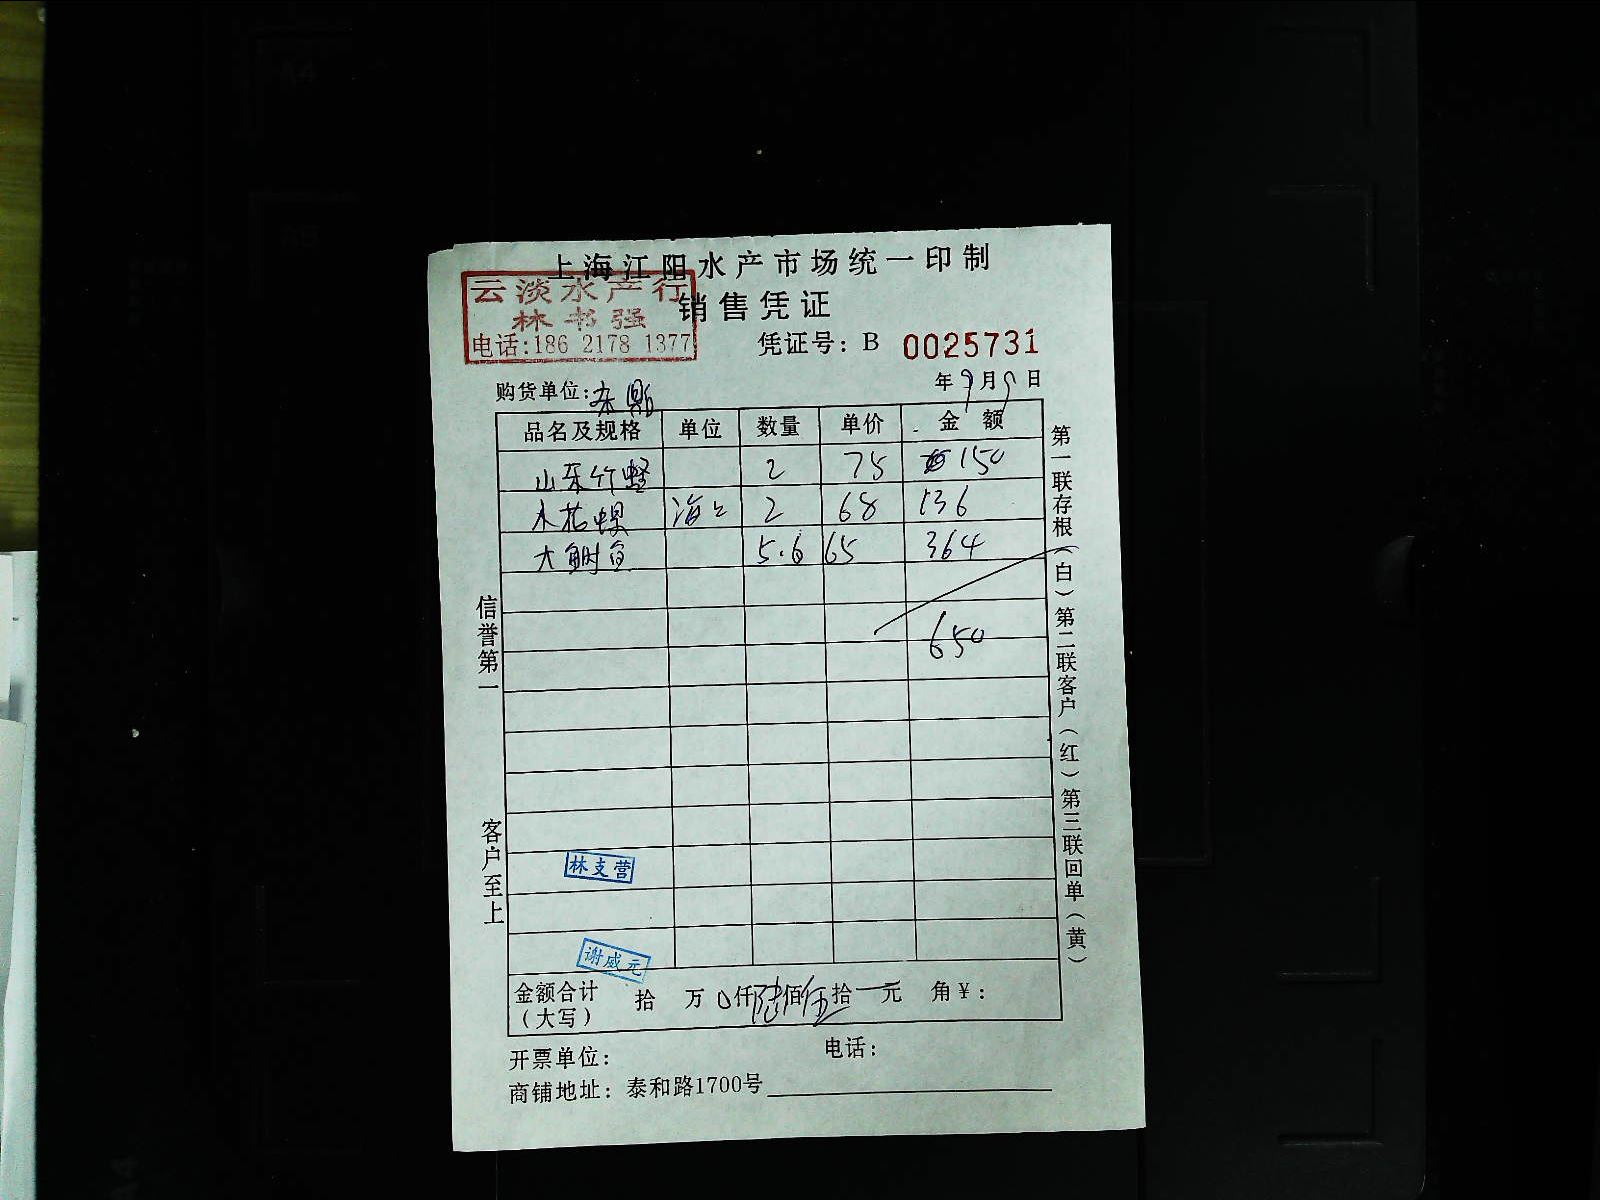 上海江阳水产市场统一印制
云淡水产行
林书强
电话:186 2178 1377
销售凭证
凭证号: B 0025731
购货单位:
年9月9日
品名及规格 单位 数量 单价 金额
山东竹蛏 2 75 150
木花螺 海上 2 68 136
大鲥鱼 5.6 65 364
650
信誉第一
客户至上
第一联存根(白)第二联客户(红)第三联回单(黄)
林支营
谢威元
金额合计(大写) 拾 万 0仟陆佰伍拾一元 角¥:
开票单位: 电话:
商铺地址: 泰和路1700号